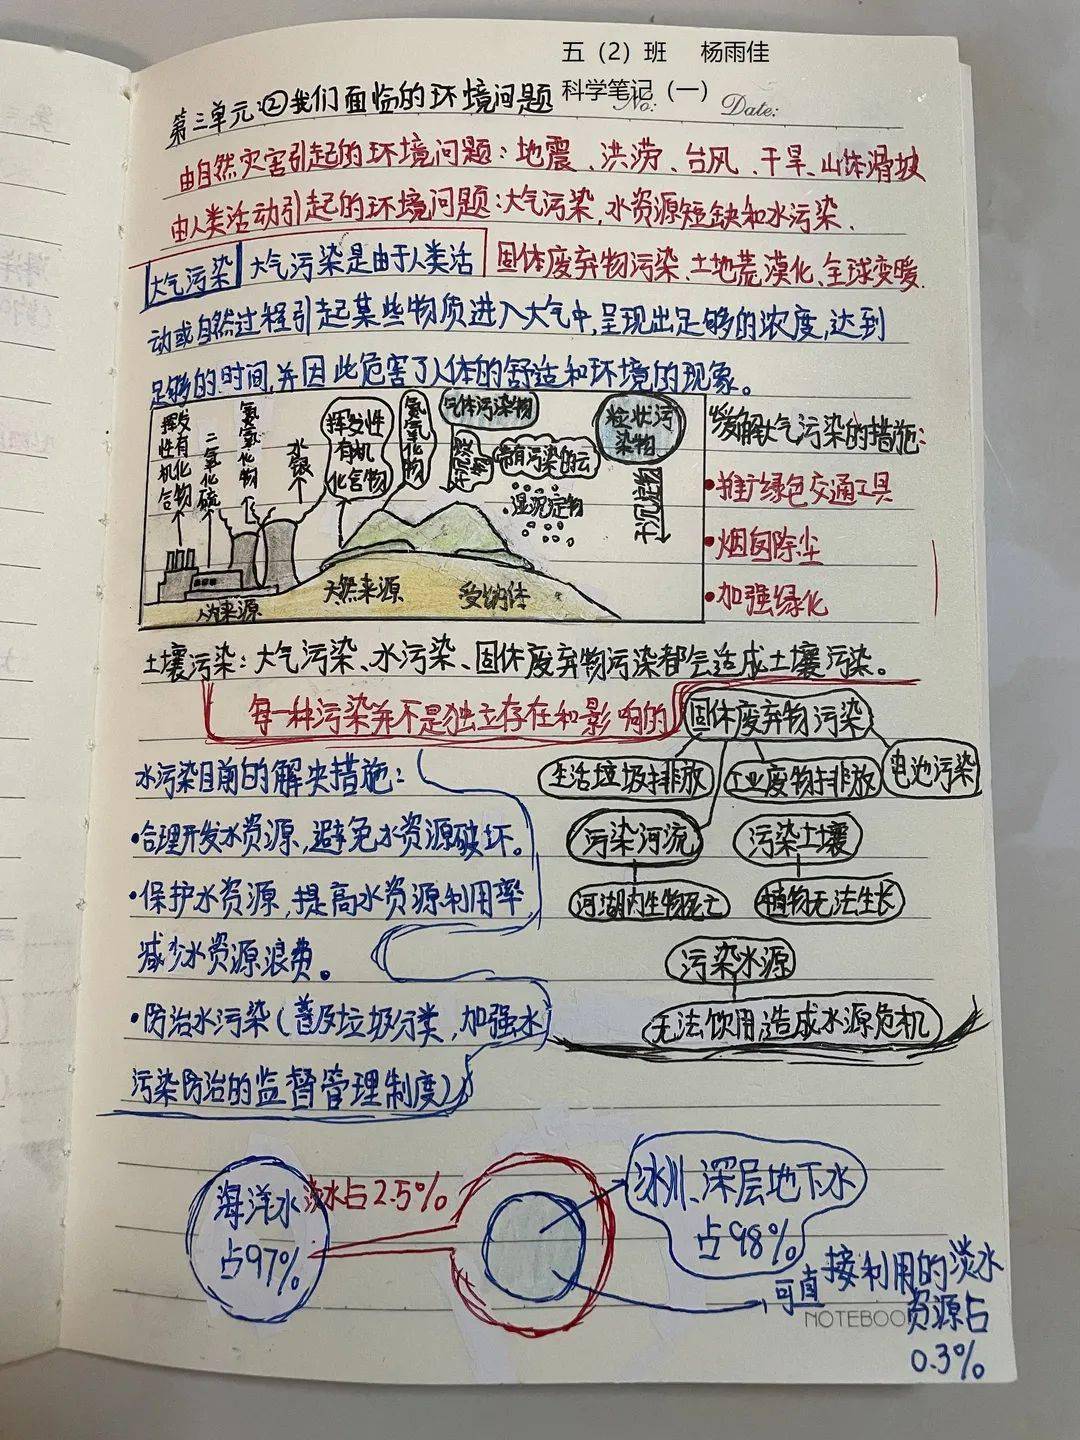 五（2）班 杨雨佳
科学笔记（一）
No:
Date:
第三单元②我们面临的环境问题
由自然灾害引起的环境问题：地震、洪涝、台风、干旱、山体滑坡
由人类活动引起的环境问题：大气污染，水资源短缺和水污染、
固体废弃物污染、土地荒漠化、全球变暖.
大气污染 大气污染是由于人类活
动或自然过程引起某些物质进入大气中，呈现出足够的浓度，达到
足够的时间，并因此危害了人体的舒适和环境的现象。
挥发性有机化合物
二氧化硫
氮氧化物
水银
挥发性有机化合物
氮氧化物
气体污染物
带有污染的云
湿沉淀物
粒状污染物
干沉淀物
人为来源
天然来源
受纳体
缓解大气污染的措施：
•推广绿色交通工具
•烟囱除尘
•加强绿化
土壤污染：大气污染、水污染、固体废弃物污染都会造成土壤污染。
每一种污染并不是独立存在和影响的
固体废弃物污染
生活垃圾排放
工业废物排放
电池污染
污染河流
污染土壤
河湖内生物死亡
植物无法生长
污染水源
无法饮用造成水源危机
水污染目前的解决措施：
•合理开发水资源，避免水资源破坏。
•保护水资源，提高水资源利用率
减少水资源浪费。
•防治水污染（普及垃圾分类，加强水
污染防治的监督管理制度）
海洋水
占97%
淡水占2.5%
冰川、深层地下水
占98%
可直接利用的淡水
资源占
0.3%
NOTEBOO